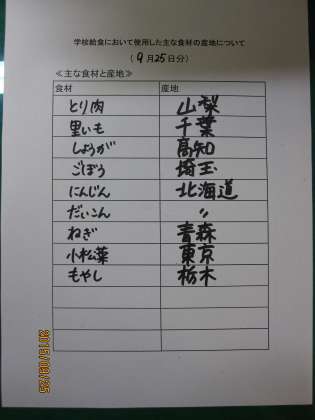 学校給食において使用した主な食材の産地について
(9月25日分)
≪主な食材と産地≫
食材 産地
とり肉 山梨
里いも 千葉
しょうが 高知
ごぼう 埼玉
にんじん 北海道
だいこん 〃
ねぎ 青森
小松菜 東京
もやし 栃木
2015/09/25